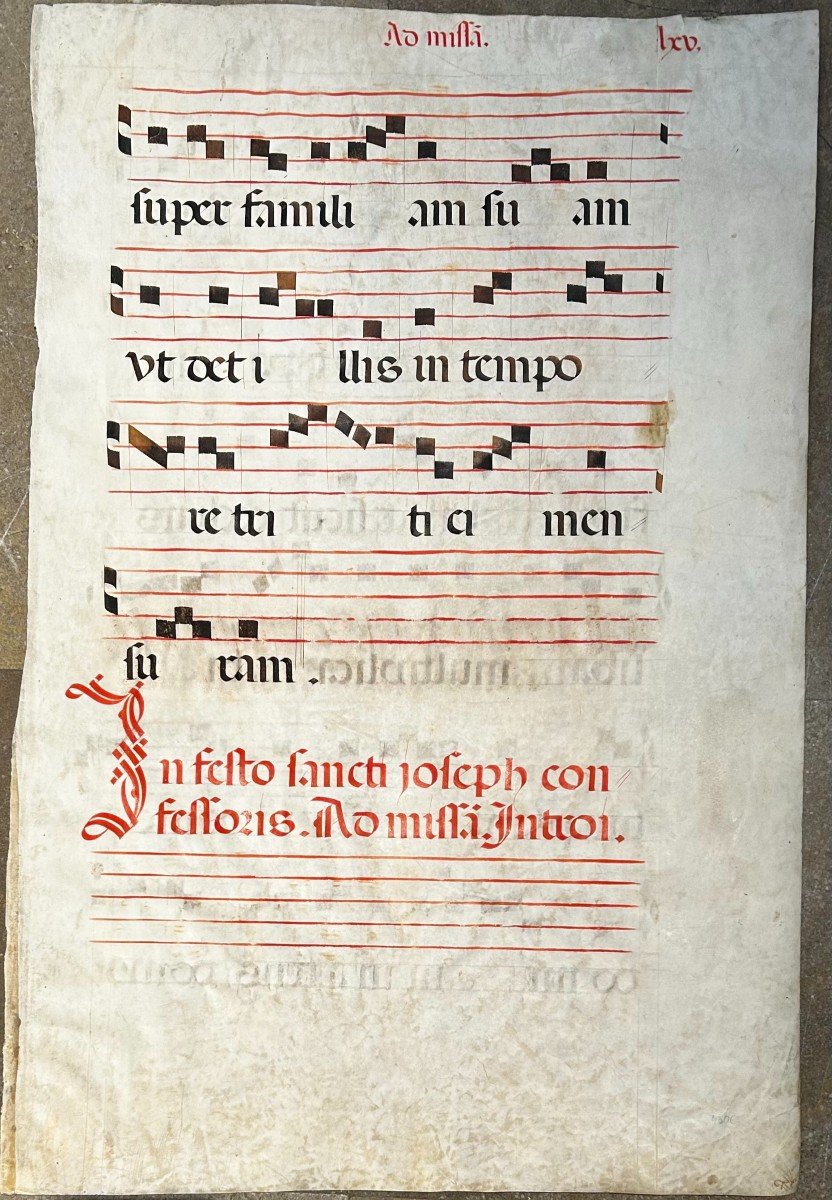 Ad missã. lxv.
super famili am su am
vt det i llis in tempo
re tri ti ci men
su ram .
In festo sancti ioseph con
fessoris. Ad missã. Introi.